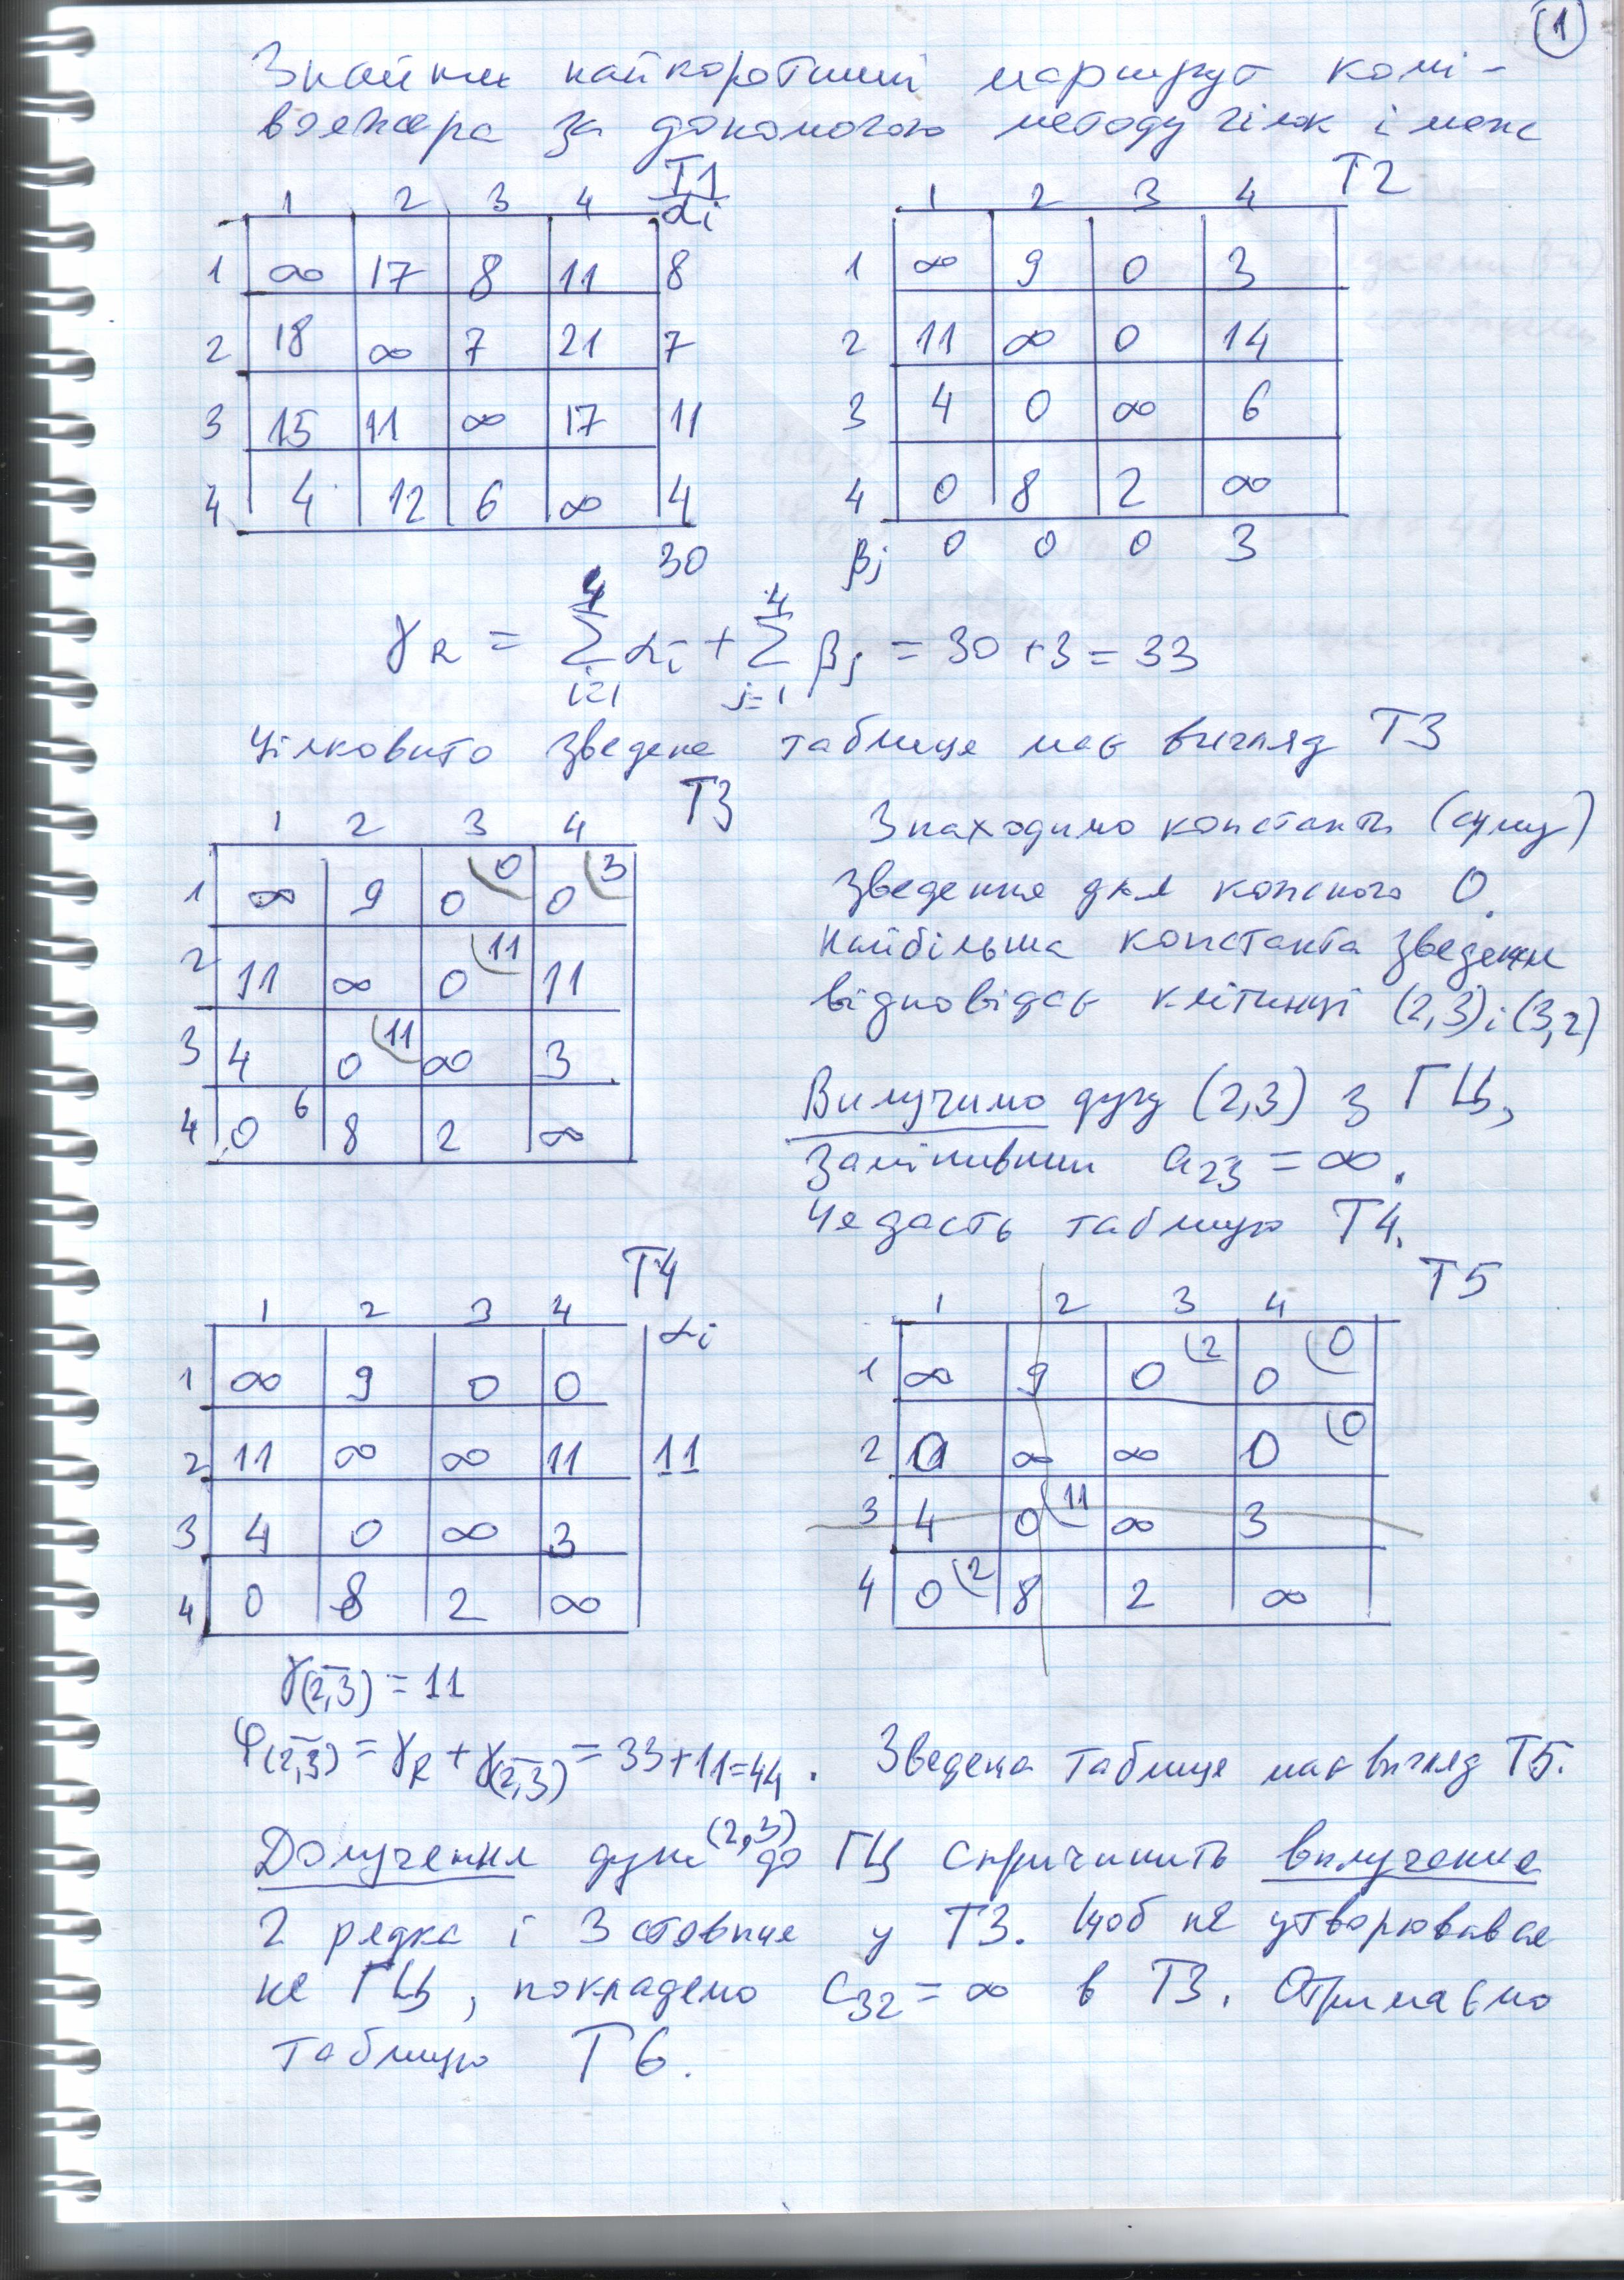 1
Знайти найкоротший маршрут комі-
вояжера за допомогою методу гілок і меж
T1
1 2 3 4 αi
1 ∞ 17 8 11 8
2 18 ∞ 7 21 7
3 15 11 ∞ 17 11
4 4 12 6 ∞ 4
30
T2
1 2 3 4
1 ∞ 9 0 3
2 11 ∞ 0 14
3 4 0 ∞ 6
4 0 8 2 ∞
βj 0 0 0 3
γR = 4∑i=1 αi + 4∑j=1 βj = 30 + 3 = 33
Цілковито зведена таблиця має вигляд T3
T3
1 2 3 4
1 ∞ 9 0 (0 0 (3
2 11 ∞ 0 (11 11
3 4 0 (11 ∞ 3
4 0 6 8 2 ∞
Знаходимо константи (суму)
зведення для кожного 0.
Найбільша константа зведення
відповідає клітинці (2,3) і (3,2)
Вилучимо дугу (2,3) з ГЦ,
замінивши a23 = ∞.
Це дасть таблицю T4.
T4
1 2 3 4 αi
1 ∞ 9 0 0
2 11 ∞ ∞ 11 11
3 4 0 ∞ 3
4 0 8 2 ∞
T5
1 2 3 4
1 ∞ 9 0 (2 0 (0
2 0 ∞ ∞ 0 (0
3 4 0 (11 ∞ 3
4 0 (2 8 2 ∞
γ(2̅,3̅) = 11
φ(2̅,3̅) = γR + γ(2̅,3̅) = 33+11=44. Зведена таблиця має вигляд T5.
Долучення дуги (2,3) до ГЦ спричинить вилучення
2 рядка і 3 стовпця у T3. Щоб не утворювався
не ГЦ, покладемо c32 = ∞ в T3. Отримаємо
таблицю T6.